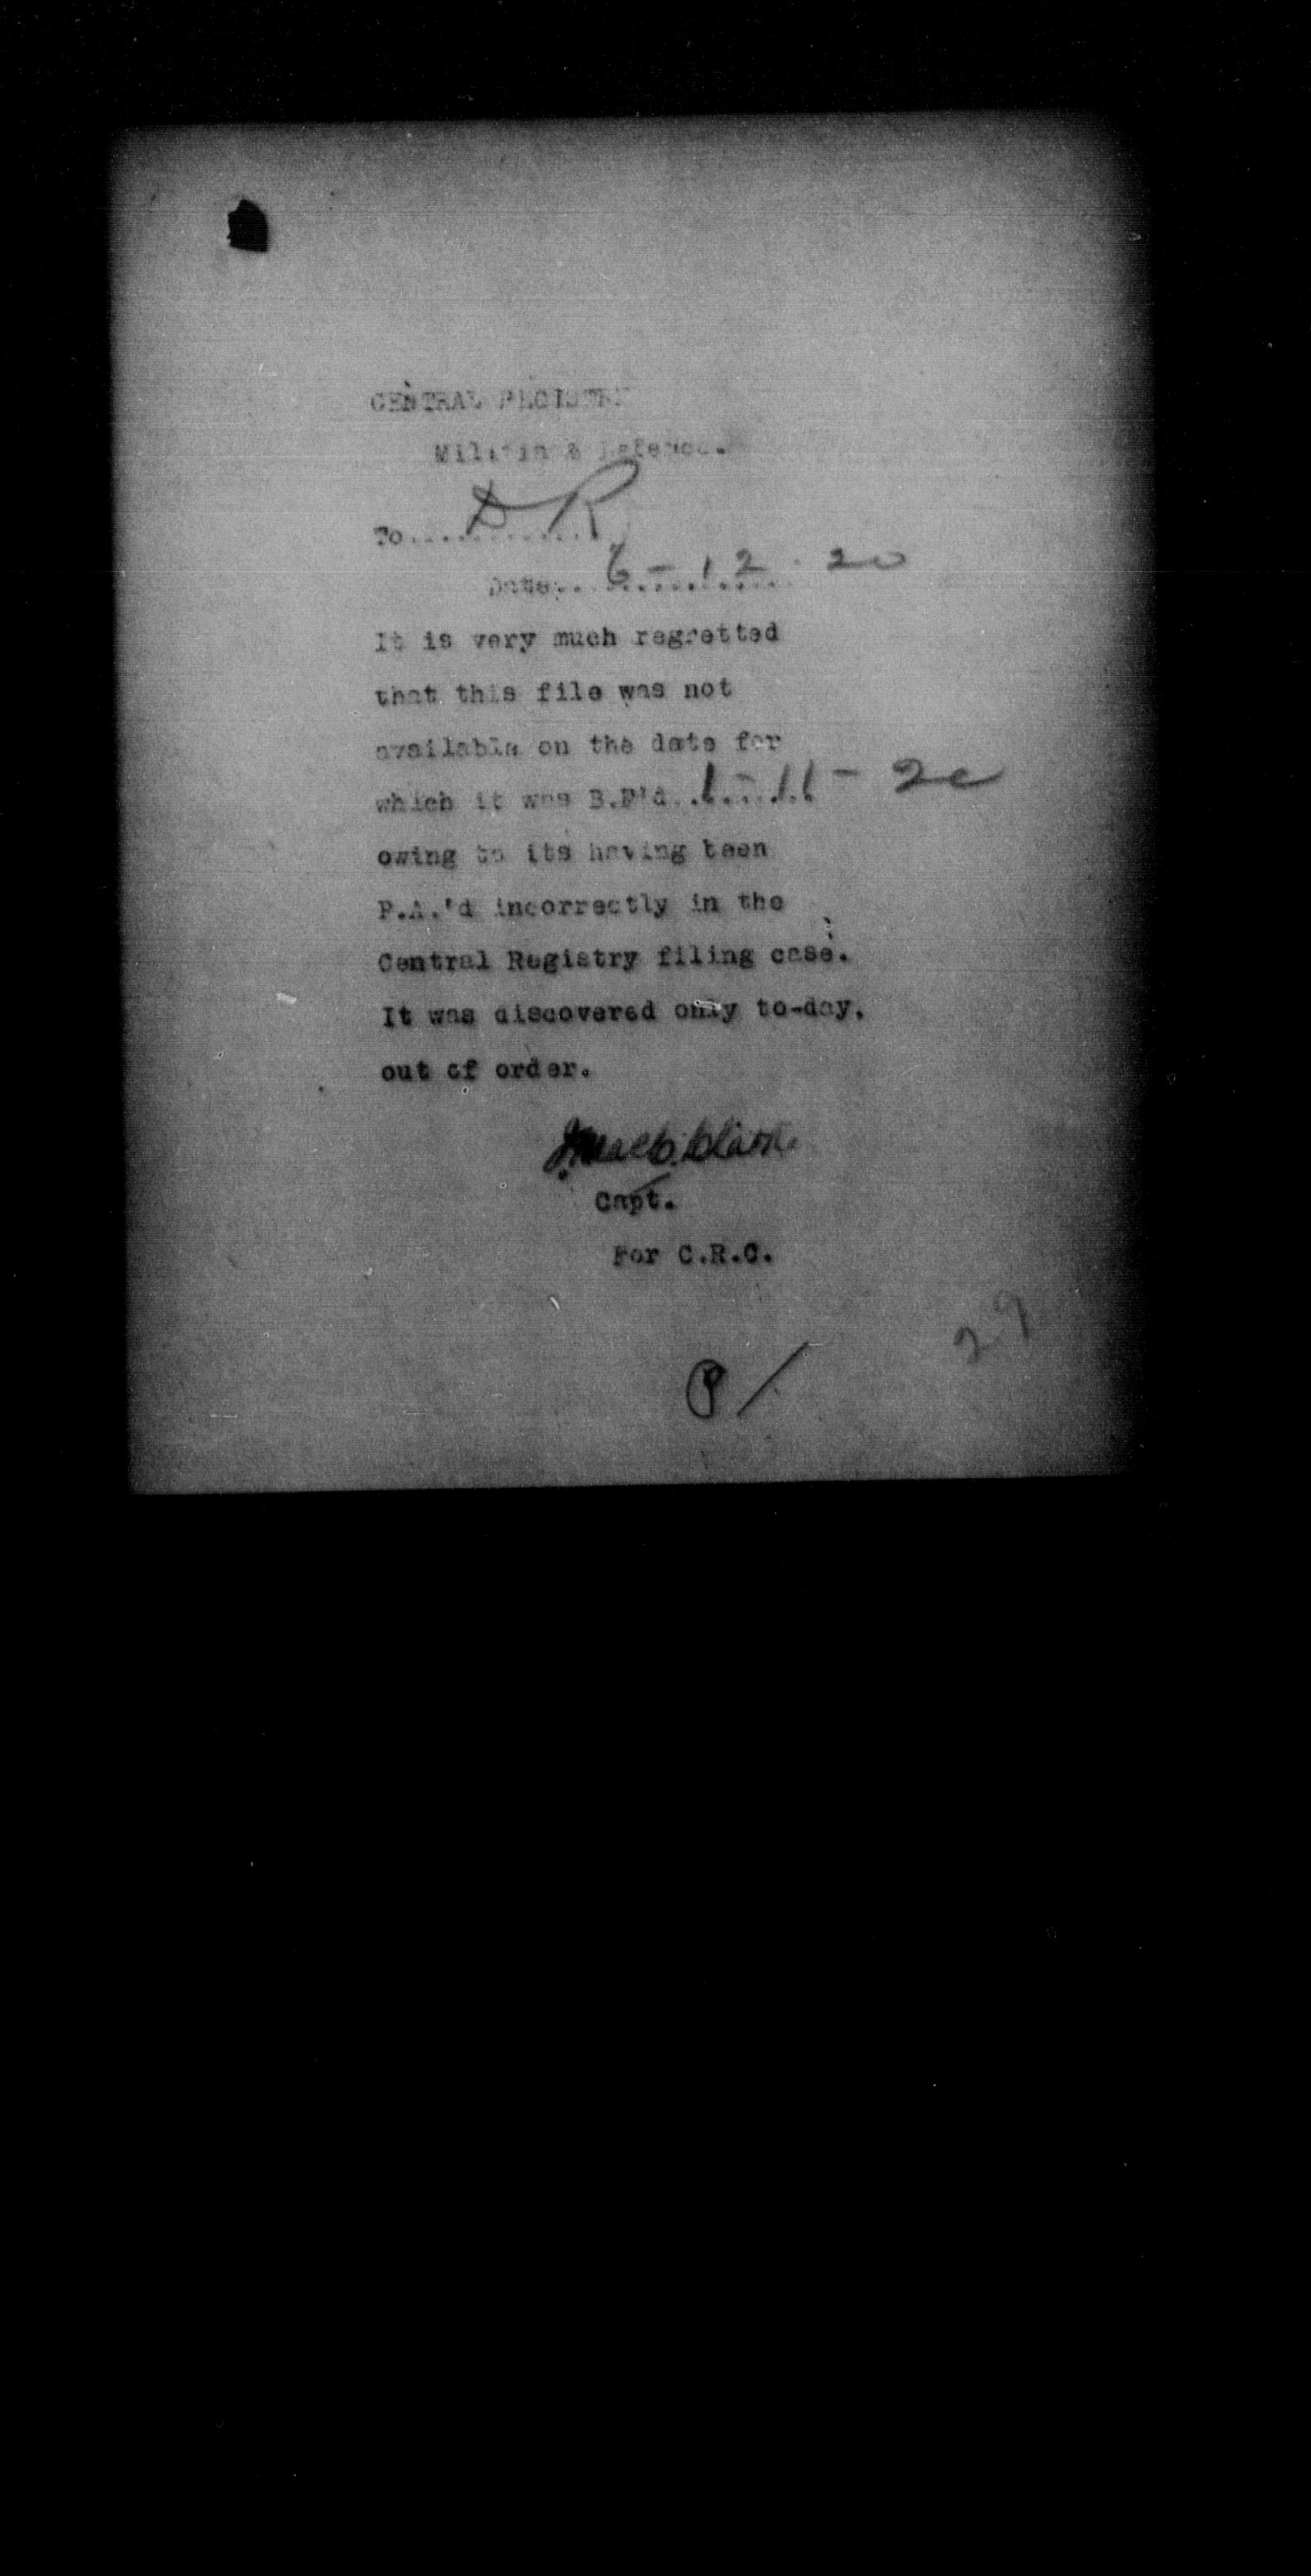 CENTRAL REGISTRY
Militia & Defence.
To............. D R
Date................ 6 - 12 . 20
It is very much regretted
that this file was not
available on the date for
which it was B.F'd......... 1 - 11 - 20
owing to its having been
P.A.'d incorrectly in the
Central Registry filing case.
It was discovered only to-day,
out of order.
Capt.
For C.R.C.
29